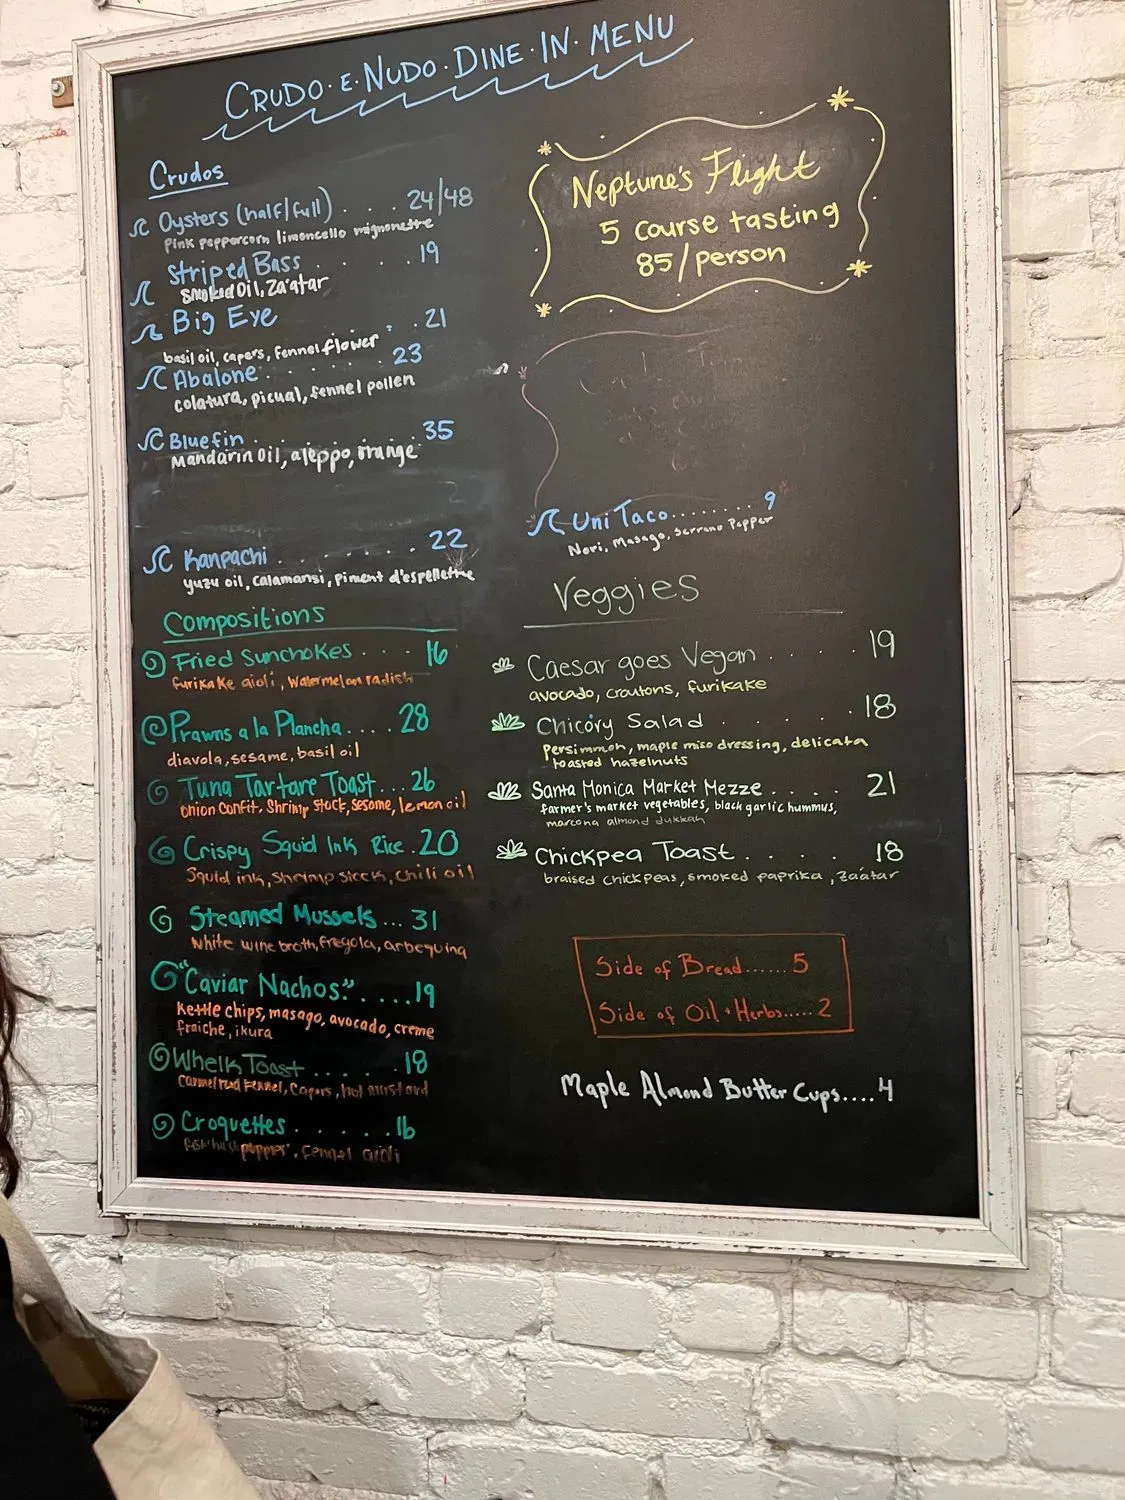 CRUDO·E·NUDO·DINE·IN·MENU
Crudos
Oysters (half/full) . . . 24/48
Pink peppercorn limoncello mignonette
Striped Bass . . . 19
Smoked Oil, Za'atar
Big Eye . . 21
basil oil, capers, fennel flower
Abalone . . . . . . 23
colatura, picual, fennel pollen
Bluefin . . . . . . 35
Mandarin Oil, aleppo, orange
Kanpachi . . . . . . . 22
yuzu oil, calamansi, piment d'espellette
Compositions
Fried Sunchokes . . . 16
furikake aioli, Watermelon radish
Prawns a la Plancha.... 28
diavola, sesame, basil oil
Tuna Tartare Toast... 26
Onion Confit, Shrimp Stock, sesame, lemon oil
Crispy Squid Ink Rice . 20
Squid ink, Shrimp stock, chili oil
Steamed Mussels ... 31
White wine broth, fregola, arbequina
"Caviar Nachos". ....19
Kettle chips, masago, avocado, creme
fraiche, ikura
Whelk Toast . . . . . 18
fennel, Capers, hot mustard
Croquettes . . . . . .16
fennel aioli
Neptune's Flight
5 course tasting
85/person
Uni Taco........ 9
Nori, Masago, Serrano Pepper
Veggies
Caesar goes Vegan . . . . 19
avocado, croutons, furikake
Chicory Salad . . . . . 18
Persimmon, maple miso dressing, delicata
toasted hazelnuts
Santa Monica Market Mezze . . . . 21
farmer's market vegetables, black garlic hummus,
marcona almond dukkah
Chickpea Toast . . . . 18
braised chickpeas, smoked paprika, Za'atar
Side of Bread...... 5
Side of Oil + Herbs..... 2
Maple Almond Butter Cups....4